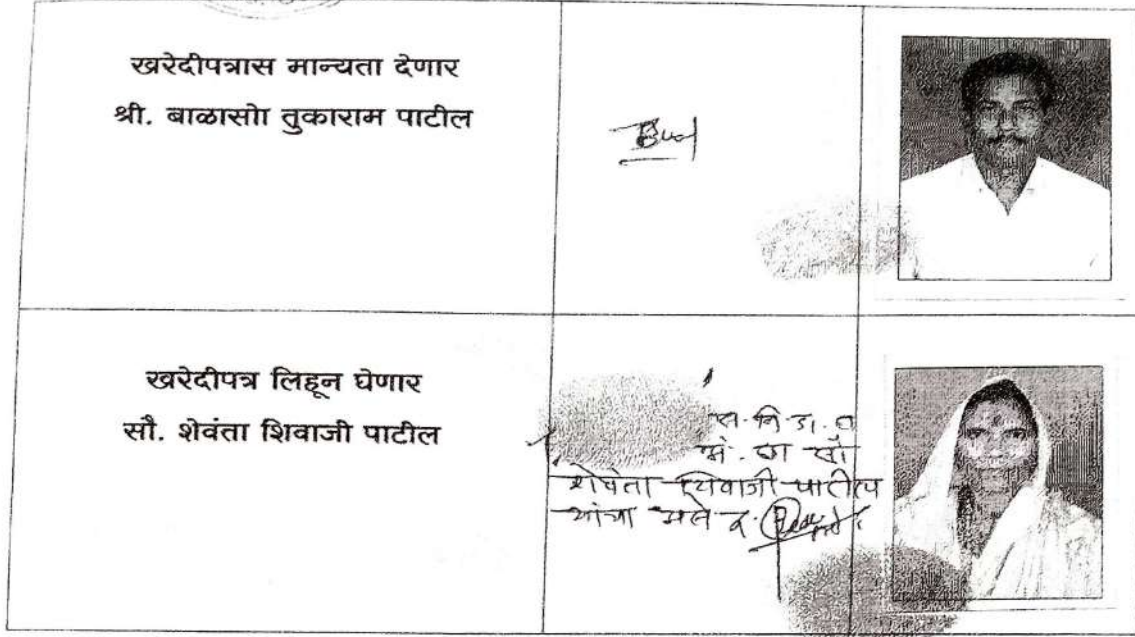 खरेदीपत्रास मान्यता देणार
श्री. बाळासो तुकाराम पाटील
खरेदीपत्र लिहून घेणार
सौ. शेवंता शिवाजी पाटील
स. नि. डा.
सौ
शेवंता शिवाजी पाटील
यांचा असे द.